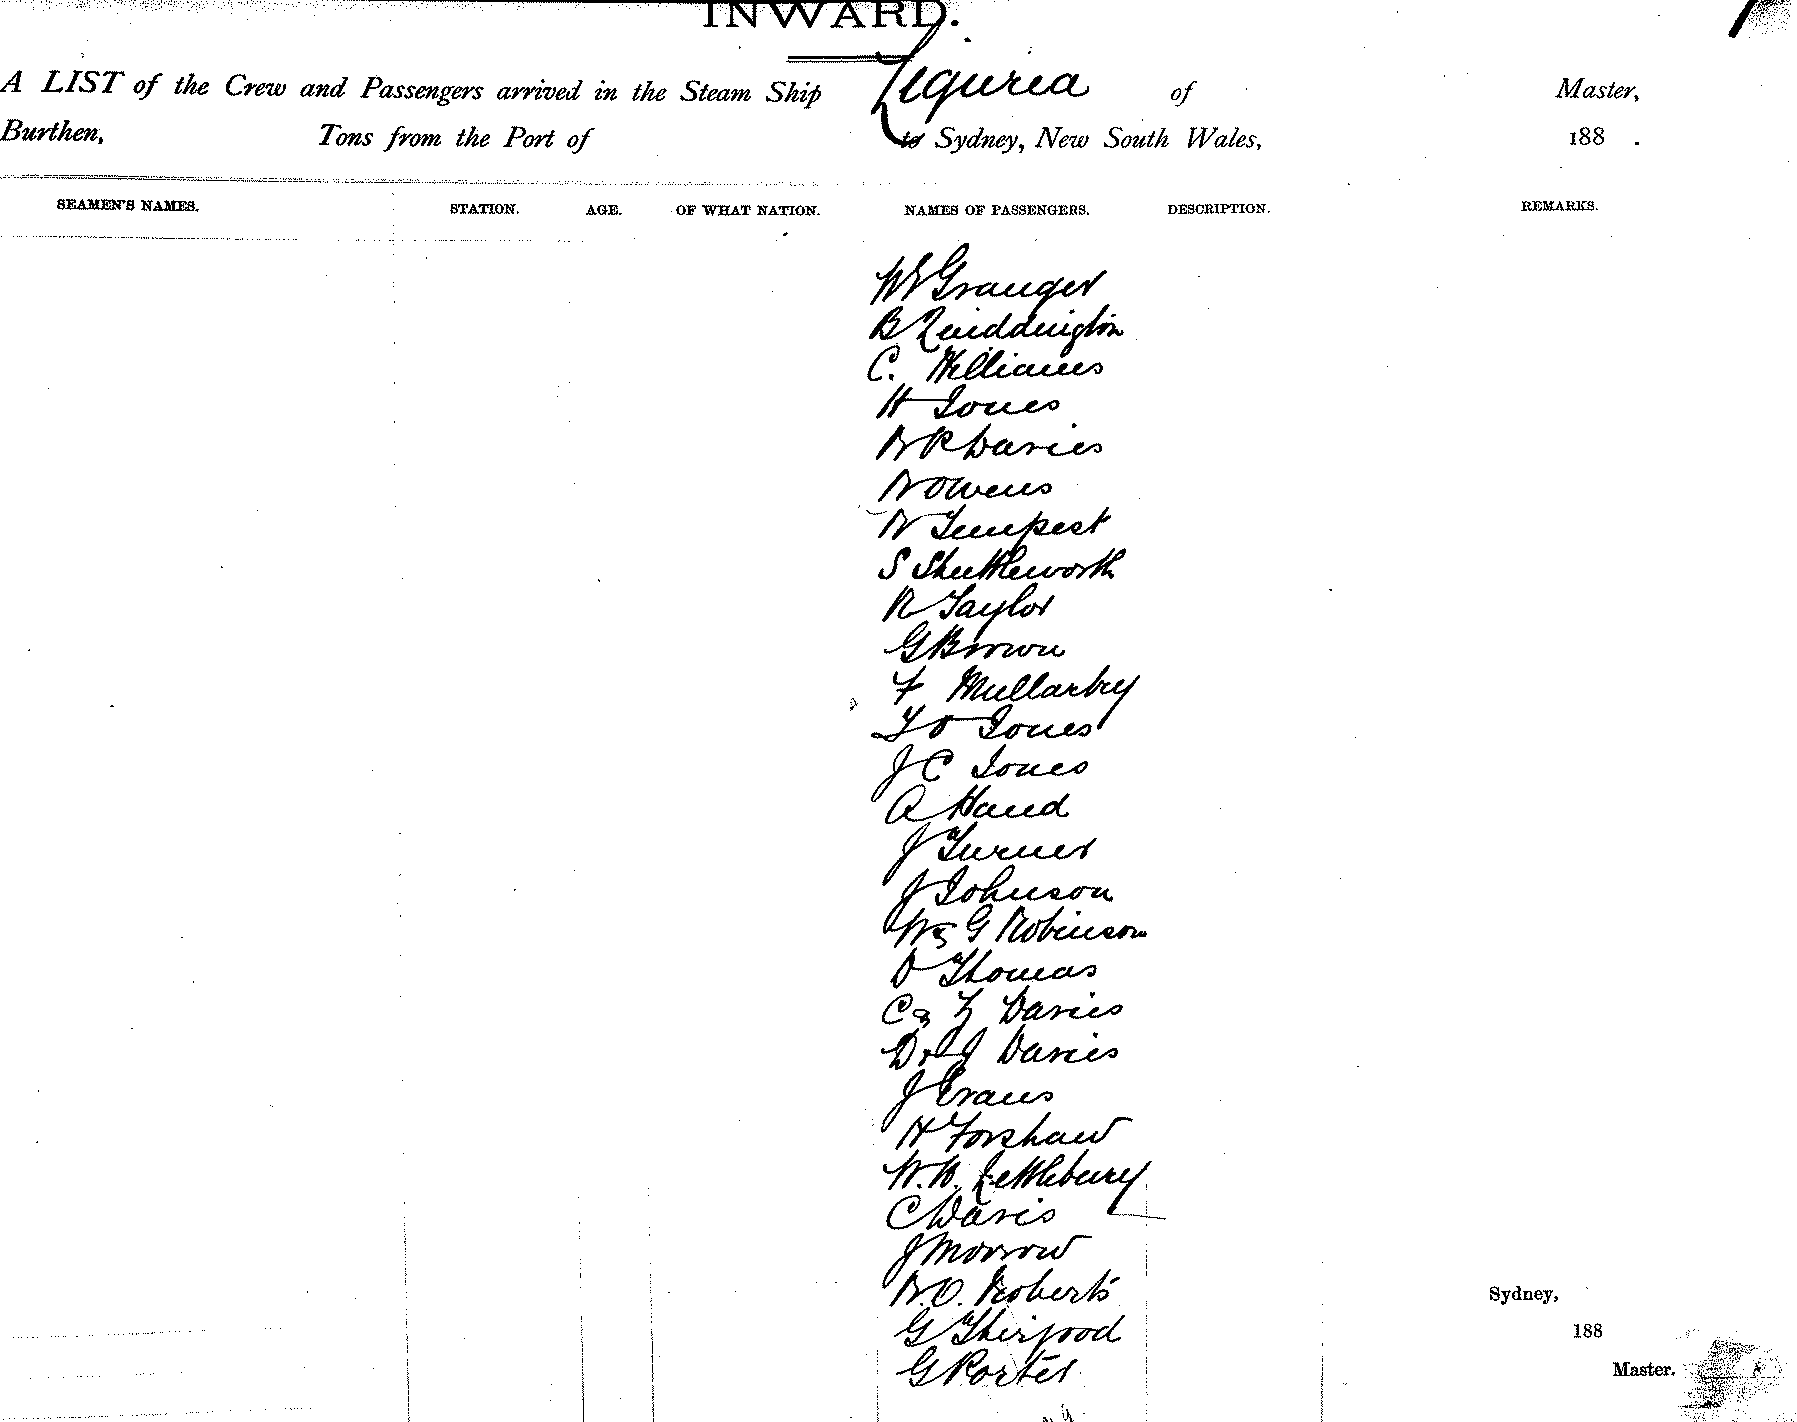 INWARD.
A LIST of the Crew and Passengers arrived in the Steam Ship Liguria of Master,
Burthen, Tons from the Port of to Sydney, New South Wales, 188 .
SEAMEN'S NAMES. STATION. AGE. OF WHAT NATION. NAMES OF PASSENGERS. DESCRIPTION. REMARKS.
Granger
B Luiddington
C. Williams
H Jones
W R Davies
W Owens
W Tempest
S Shuttleworth
R Taylor
G Brown
F Mullarky
T O Jones
J C Jones
A Hand
J Turner
J Johnson
W & G Robinson
D Thomas
C & Davies
D & J Davies
J Evans
H Forshaw
W. W. Lettlebury
C Davis
J Morrow
W. O. Roberts
Sydney,
G Thirfood
188
G Porter
Master.